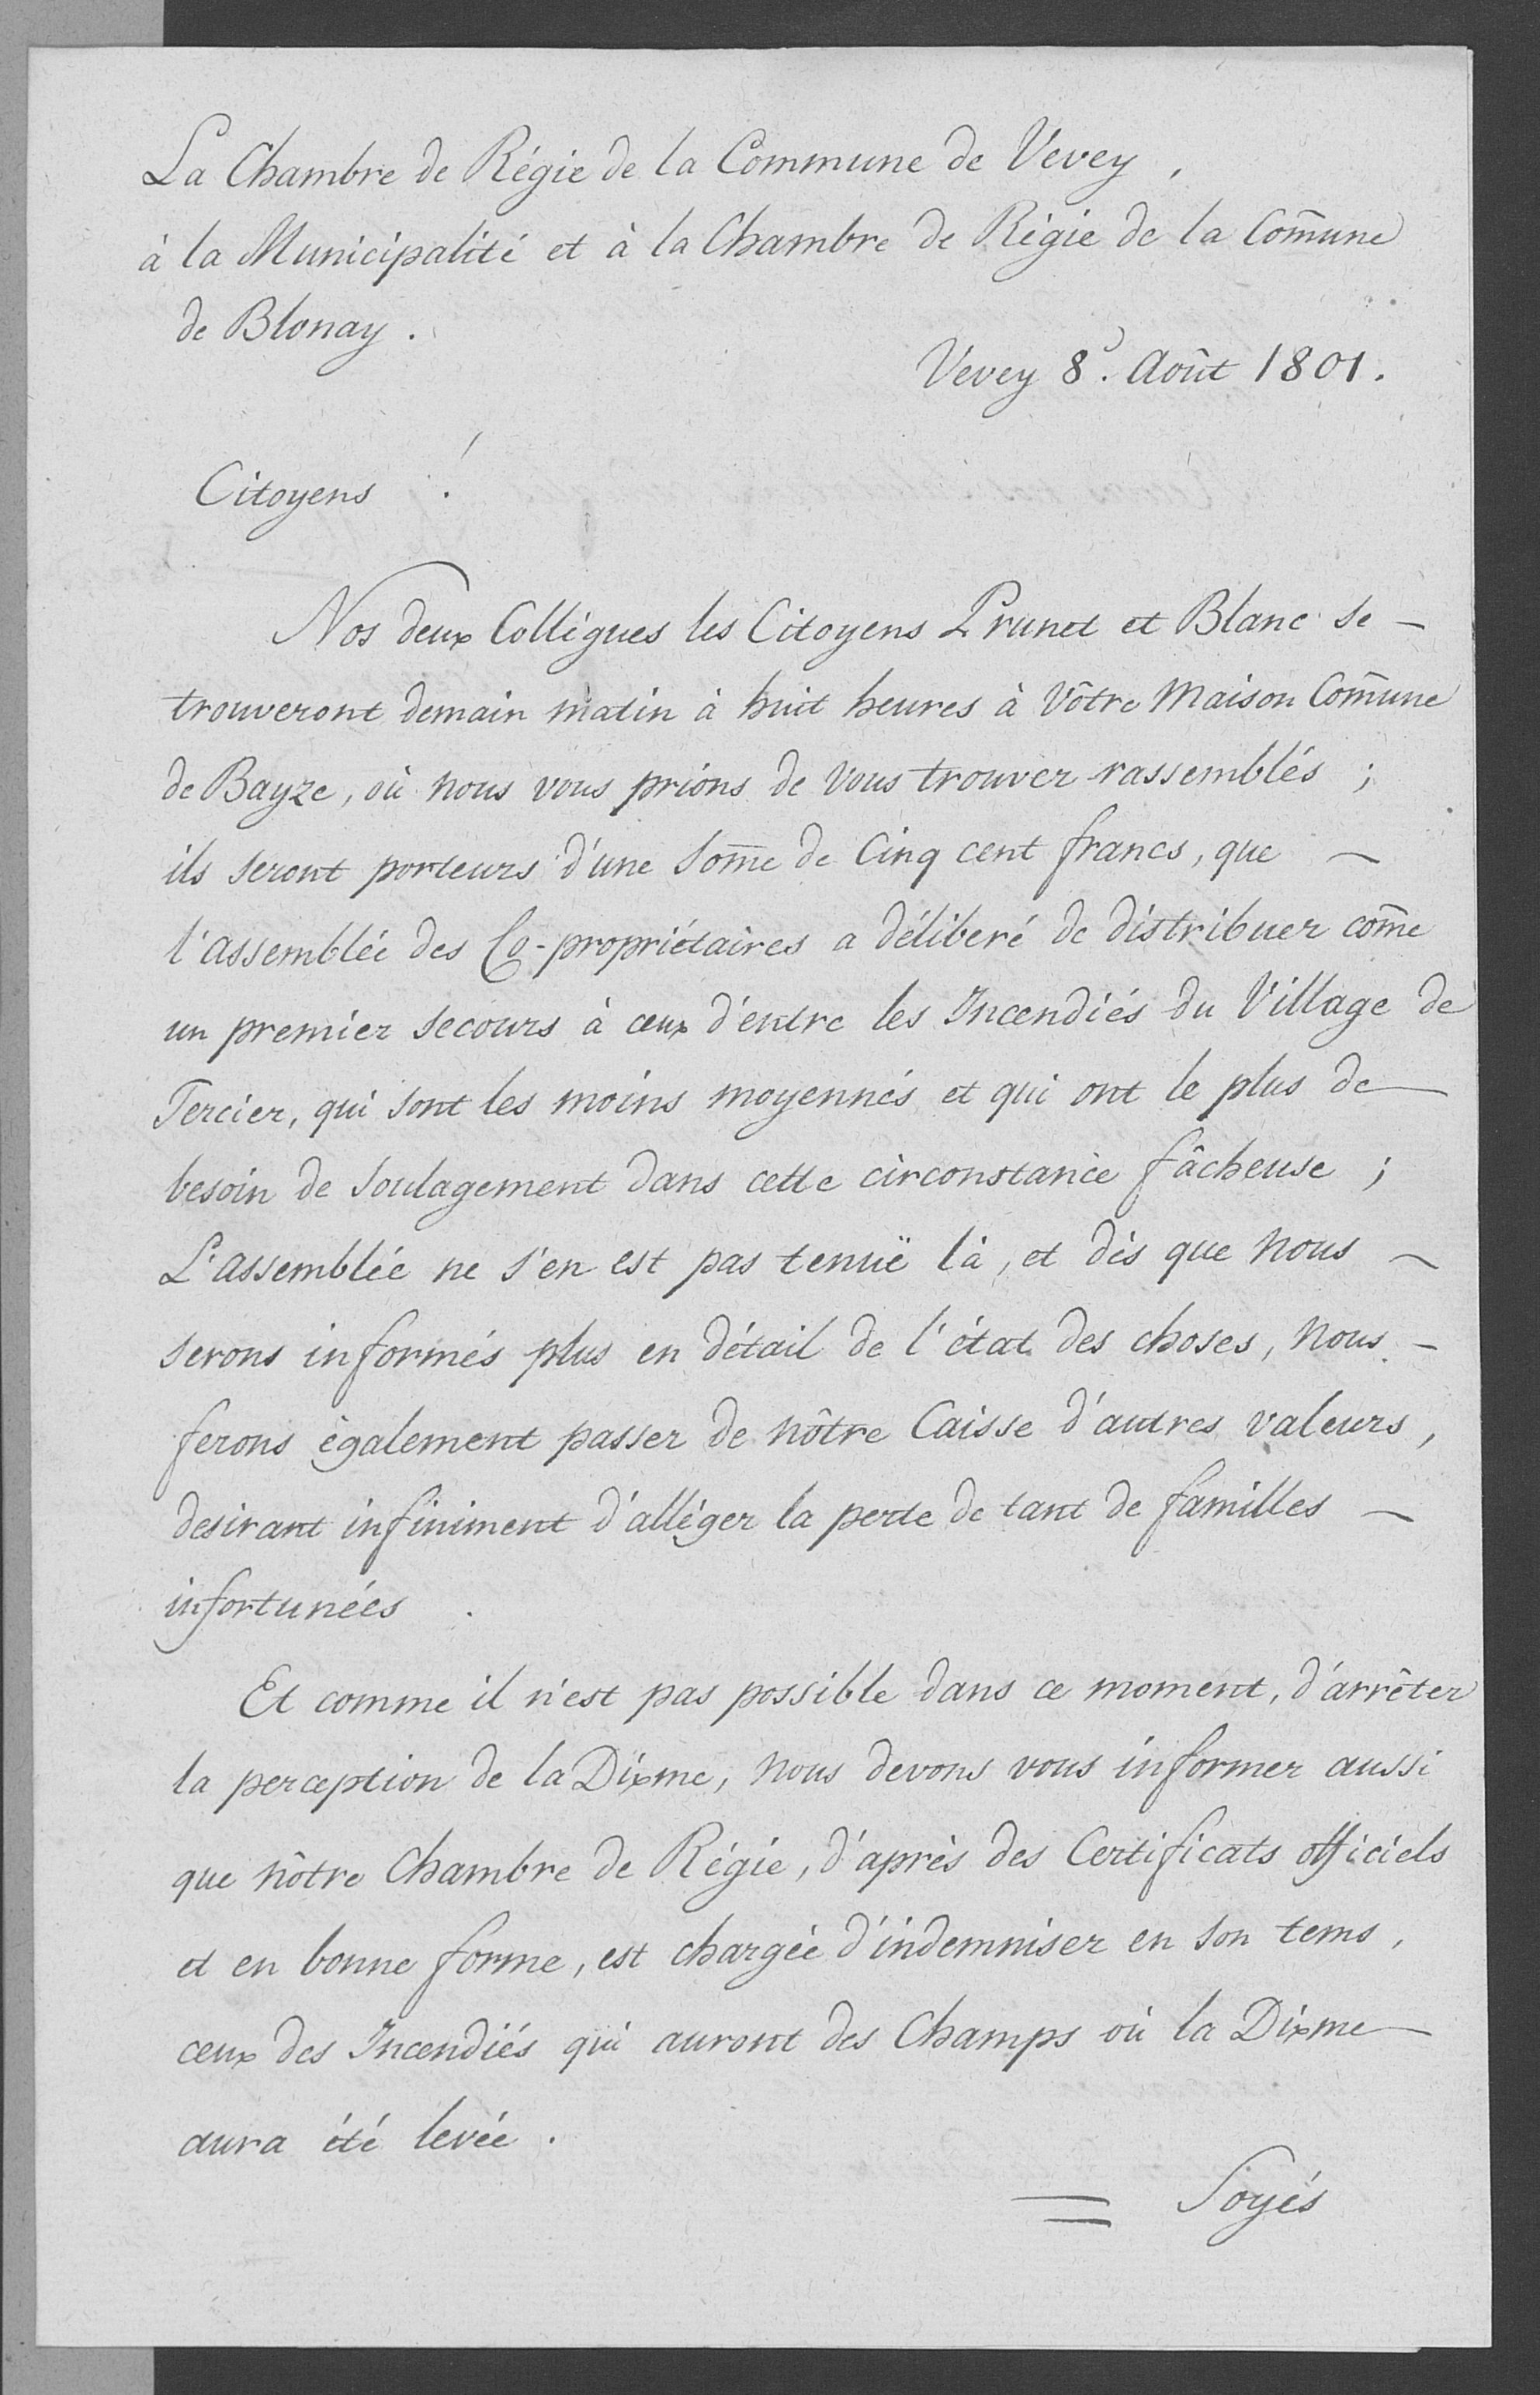 La Chambre de Régie de la Commune de Vevey,
à la Municipalité et à la Chambre de Régie de la Com̄une
de Blonay.
Vevey 8e. Août 1801.
Citoyens !
Nos deux Collégues les Citoyens Prunet et Blanc se –
trouveront demain matin à huit heures à Vôtre Maison Com̄une
de Bayze, où nous vous prions de vous trouver rassemblés ;
ils seront porteurs d'une som̄e de Cinq cent francs, que –
l'assemblée des Co-propriétaires a déliberé de distribuer com̄e
un premier secours à ceux d'entre les Incendiés du Village de
Tercier, qui sont les moins moyennés et qui ont le plus de –
besoin de soulagement dans cette circonstance fâcheuse ;
L'assemblée ne s'en est pas tenuë là, et dès que nous –
serons informés plus en détail de l'état des choses, nous –
ferons également passer de nôtre Caisse d'autres valeurs,
desirant infiniment d'alléger la perte de tant de familles –
infortunées .
Et comme il n'est pas possible dans ce moment, d'arrêter
la perception de la Dixme, nous devons vous informer aussi
que nôtre Chambre de Régie, d'après des Certificats officiels
et en bonne forme, est chargée d'indemniser en son tems,
ceux des Incendiés qui auront des Champs où la Dixme –
aura été levée .
= Soyés